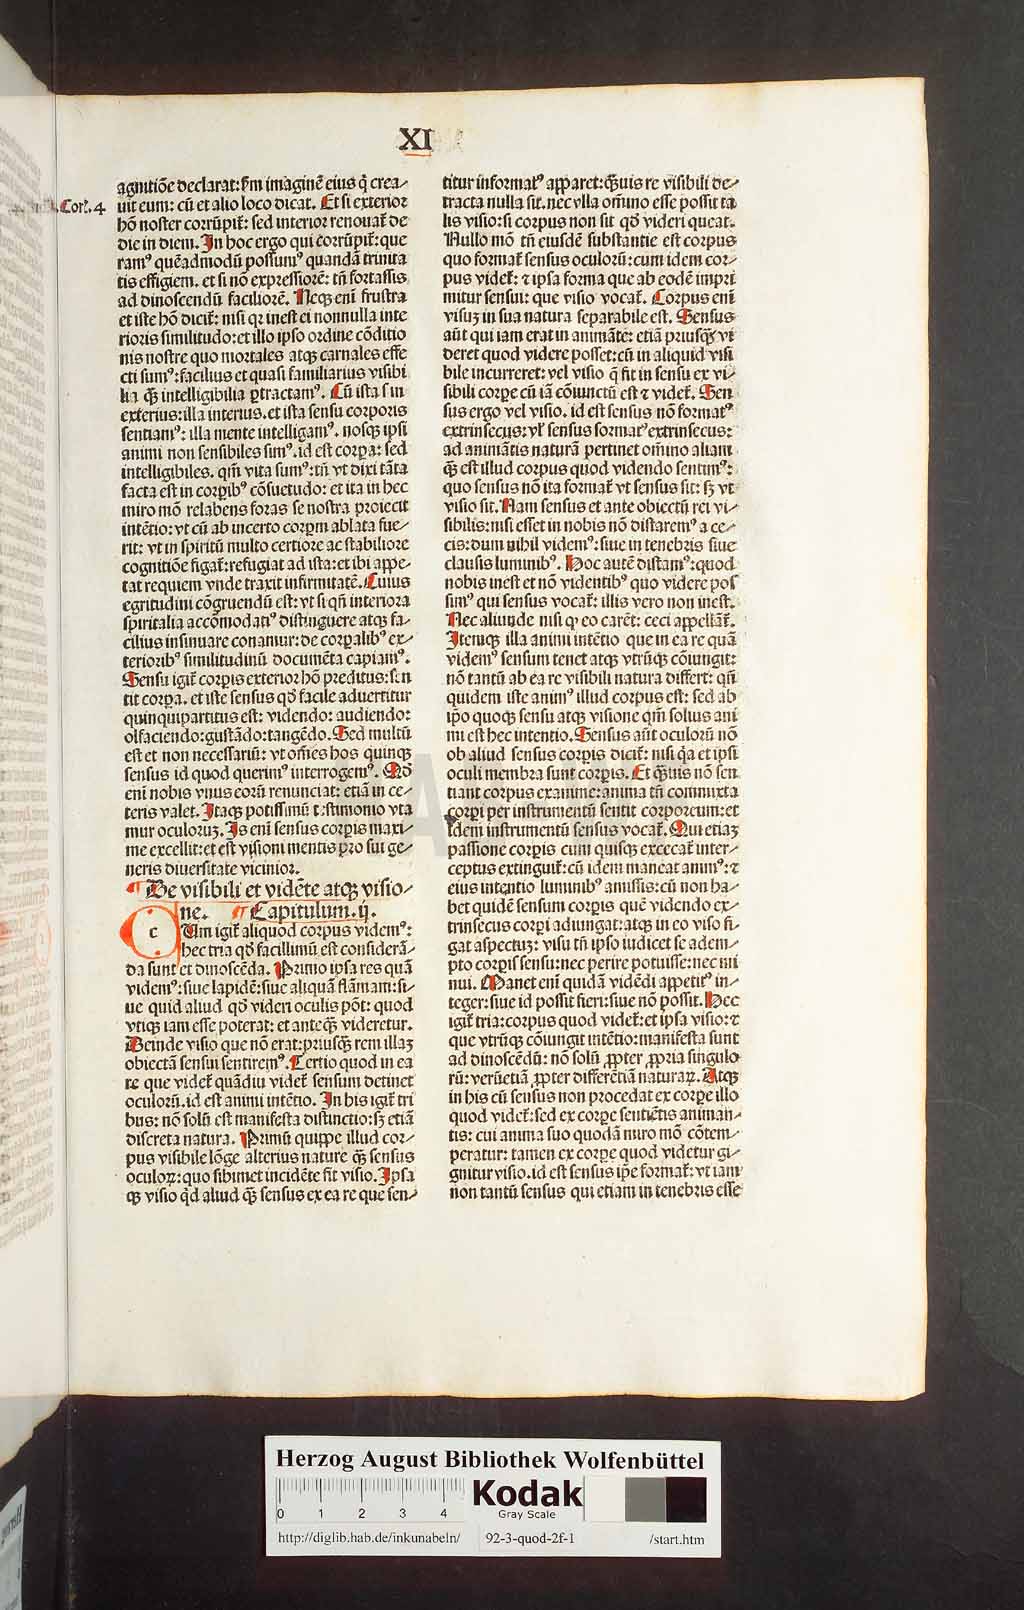 XI
Cor. 4
agnitiōe declarat: ẜm imaginē eius q̇ crea⸗
uit eum: cū et alio loco dicat. Et si exterior
hō noster corrūpiť: sed interior renouať de
die in diem. In hoc ergo qui corrūpiť: que
ramꝰ quēadmodū possumꝰ quandā trinita
tis effigiem. et si nō expressiorē: tñ fortassis
ad dinoscendū faciliorē. Neqꝫ enī frustra
et iste hō diciť: nisi qꝛ inest ei nonnulla inte
rioris similitudo: et illo ipso ordine cōditio
nis nostre quo mortales atqꝫ carnales effe
cti sumꝰ: facilius et quasi familiarius visibi
lia q̄ꝫ intelligibilia ꝑtractamꝰ. Cū ista sin
exterius: illa interius. et ista sensu corporis
sentiamꝰ: illa mente intelligamꝰ. nosqꝫ ipsi
animi non sensibiles simꝰ. id est corpa: sed
intelligibiles. qm̄ vita sumꝰ: tñ vt dixi tāta
facta est in corpibꝰ cōsuetudo: et ita in hec
miro mō relabens foras se nostra proiecit
intētio: vt cū ab incerto corpm ablata fue⸗
rit: vt in spiritū multo certiore ac stabiliore
cognitiōe figať: refugiat ad ista: et ibi appe⸗
tat requiem vnde traxit infirmitatē. Cuius
egritudini cōgruendū est: vt si qñ interiora
spiritalia accōmodatiꝰ distinguere atqꝫ fa⸗
cilius insinuare conamur: de corpalibꝰ ex⸗
terioribꝰ similitudinū documēta capiamꝰ.
Sensu igiť corpis exterior hō preditus: sen
tit corpa. et iste sensus qđ facile aduertitur
quinquipartitus est: videndo: audiendo:
olfaciendo: gustādo: tangēdo. Sed multū
est et non necessariū: vt om̄es hos quinqꝫ
sensus id quod querimꝰ interrogemꝰ. Qđ
enī nobis vnus eorū renunciat: etiā in ce⸗
teris valet. Itaqꝫ potissimū testimonio vta
mur oculoruꝫ. Is enī sensus corpis maxi⸗
me excellit: et est visioni mentis pro sui ge⸗
neris diuersitate vicinior.
¶ De visibili et vidēte atqꝫ visio⸗
ne. ¶ Capitulum. ij.
cUm igiť aliquod corpus videmꝰ:
hec tria qđ facillimū est considerā⸗
da sunt et dinoscēda. Primo ipsa res quā
videmꝰ: siue lapidē: siue aliquā flāmam: si⸗
ue quid aliud qđ videri oculis pōt: quod
vtiqꝫ iam esse poterat: et anteq̄ꝫ videretur.
Deinde visio que nō erat: priusq̄ꝫ rem illaꝫ
obiectā sensui sentiremꝰ. Tertio quod in ea
re que videť quādiu videť sensum detinet
oculorū. id est animi intētio. In his igiť tri
bus: nō solū est manifesta distinctio: sꝫ etiā
discreta natura. Primū quippe illud cor⸗
pus visibile lōge alterius nature q̄ꝫ sensus
oculoꝝ: quo sibimet incidēte fit visio. Ipsa
qꝫ visio qđ aliud q̄ꝫ sensus ex ea re que sen⸗
titur informatꝰ apparet: q̄ꝫuis re visibili de⸗
tracta nulla sit. nec vlla om̄ino esse possit ta
lis visio: si corpus non sit qđ videri queat.
Nullo mō tñ eiusdē substantie est corpus
quo formať sensus oculorū: cum idem cor⸗
pus videť: ⁊ ipsa forma que ab eodē impri
mitur sensui: que visio vocať. Corpus enī
visuꝫ in sua natura separabile est. Sensus
aūt qui iam erat in animāte: etiā priusq̄ꝫ vi
deret quod videre posset: cū in aliquid visi
bile incurreret: vel visio q̄ fit in sensu ex vi⸗
sibili corpe cū iā cōiunctū est ⁊ videť. Sen
sus ergo vel visio. id est sensus nō formatꝰ
extrinsecus: vl' sensus formatꝰ extrinsecus:
ad animātis naturā pertinet om̄ino aliam
q̄ꝫ est illud corpus quod videndo sentimꝰ:
quo sensus nō ita formať vt sensus sit: sꝫ vt
visio sit. Nam sensus et ante obiectū rei vi⸗
sibilis: nisi esset in nobis nō distaremꝰ a ce⸗
cis: dum nihil videmꝰ: siue in tenebris siue
clausis luminibꝰ. Hoc autē distamꝰ: quod
nobis inest et nō videntibꝰ quo videre pos
simꝰ qui sensus vocať: illis vero non inest.
Nec aliunde nisi qꝛ eo carēt: ceci appellāť.
Itemqꝫ illa animi intētio que in ea re quā
videmꝰ sensum tenet atqꝫ vtrūqꝫ cōiungit:
nō tantū ab ea re visibili natura differt: qñ
quidem iste animꝰ illud corpus est: sed ab
ip̄o quoqꝫ sensu atqꝫ visione qm̄ solius ani
mi est hec intentio. Sensus aūt oculorū nō
ob aliud sensus corpis diciť: nisi q̇a et ipsi
oculi membra sunt corpis. Et q̄ꝫuis nō sen
tiant corpus exanime: anima tñ commixta
corpi per instrumentū sentit corporeum: et
idem instrumentū sensus vocať. Qui etiaꝫ
passione corpis cum quisqꝫ excecať inter⸗
ceptus extinguiť: cū idem maneat animꝰ: ⁊
eius intentio luminibꝰ amissis: cū non ha⸗
bet quidē sensum corpis quē videndo ex⸗
trinsecus corpi adiungat: atqꝫ in eo viso fi⸗
gat aspectuꝫ: visu tñ ipso iudicet se adem⸗
pto corpis sensu: nec perire potuisse: nec mi
nui. Manet enī quidā vidēdi appetitꝰ in⸗
teger: siue id possit fieri: siue nō possit. Hec
igiť tria: corpus quod videť: et ipsa visio: ⁊
que vtrūqꝫ cōiungit intētio: manifesta sunt
ad dinoscēdū: nō solū ꝓpter ꝓpria singulo
rū: verūetiā ꝓpter differētiā naturaꝝ. Atqꝫ
in his cū sensus non procedat ex corpe illo
quod videť: sed ex corpe sentiētis animan⸗
tis: cui anima suo quodā miro mō cōtem⸗
peratur: tamen ex corpe quod videtur gi⸗
gnitur visio. id est sensus ip̄e formať: vt iam
non tantū sensus qui etiam in tenebris esse
Herzog August Bibliothek Wolfenbüttel
0 1 2 3 4
Kodak
Gray Scale
http://diglib.hab.de/inkunabeln/ 92-3-quod-2f-1 /start.htm